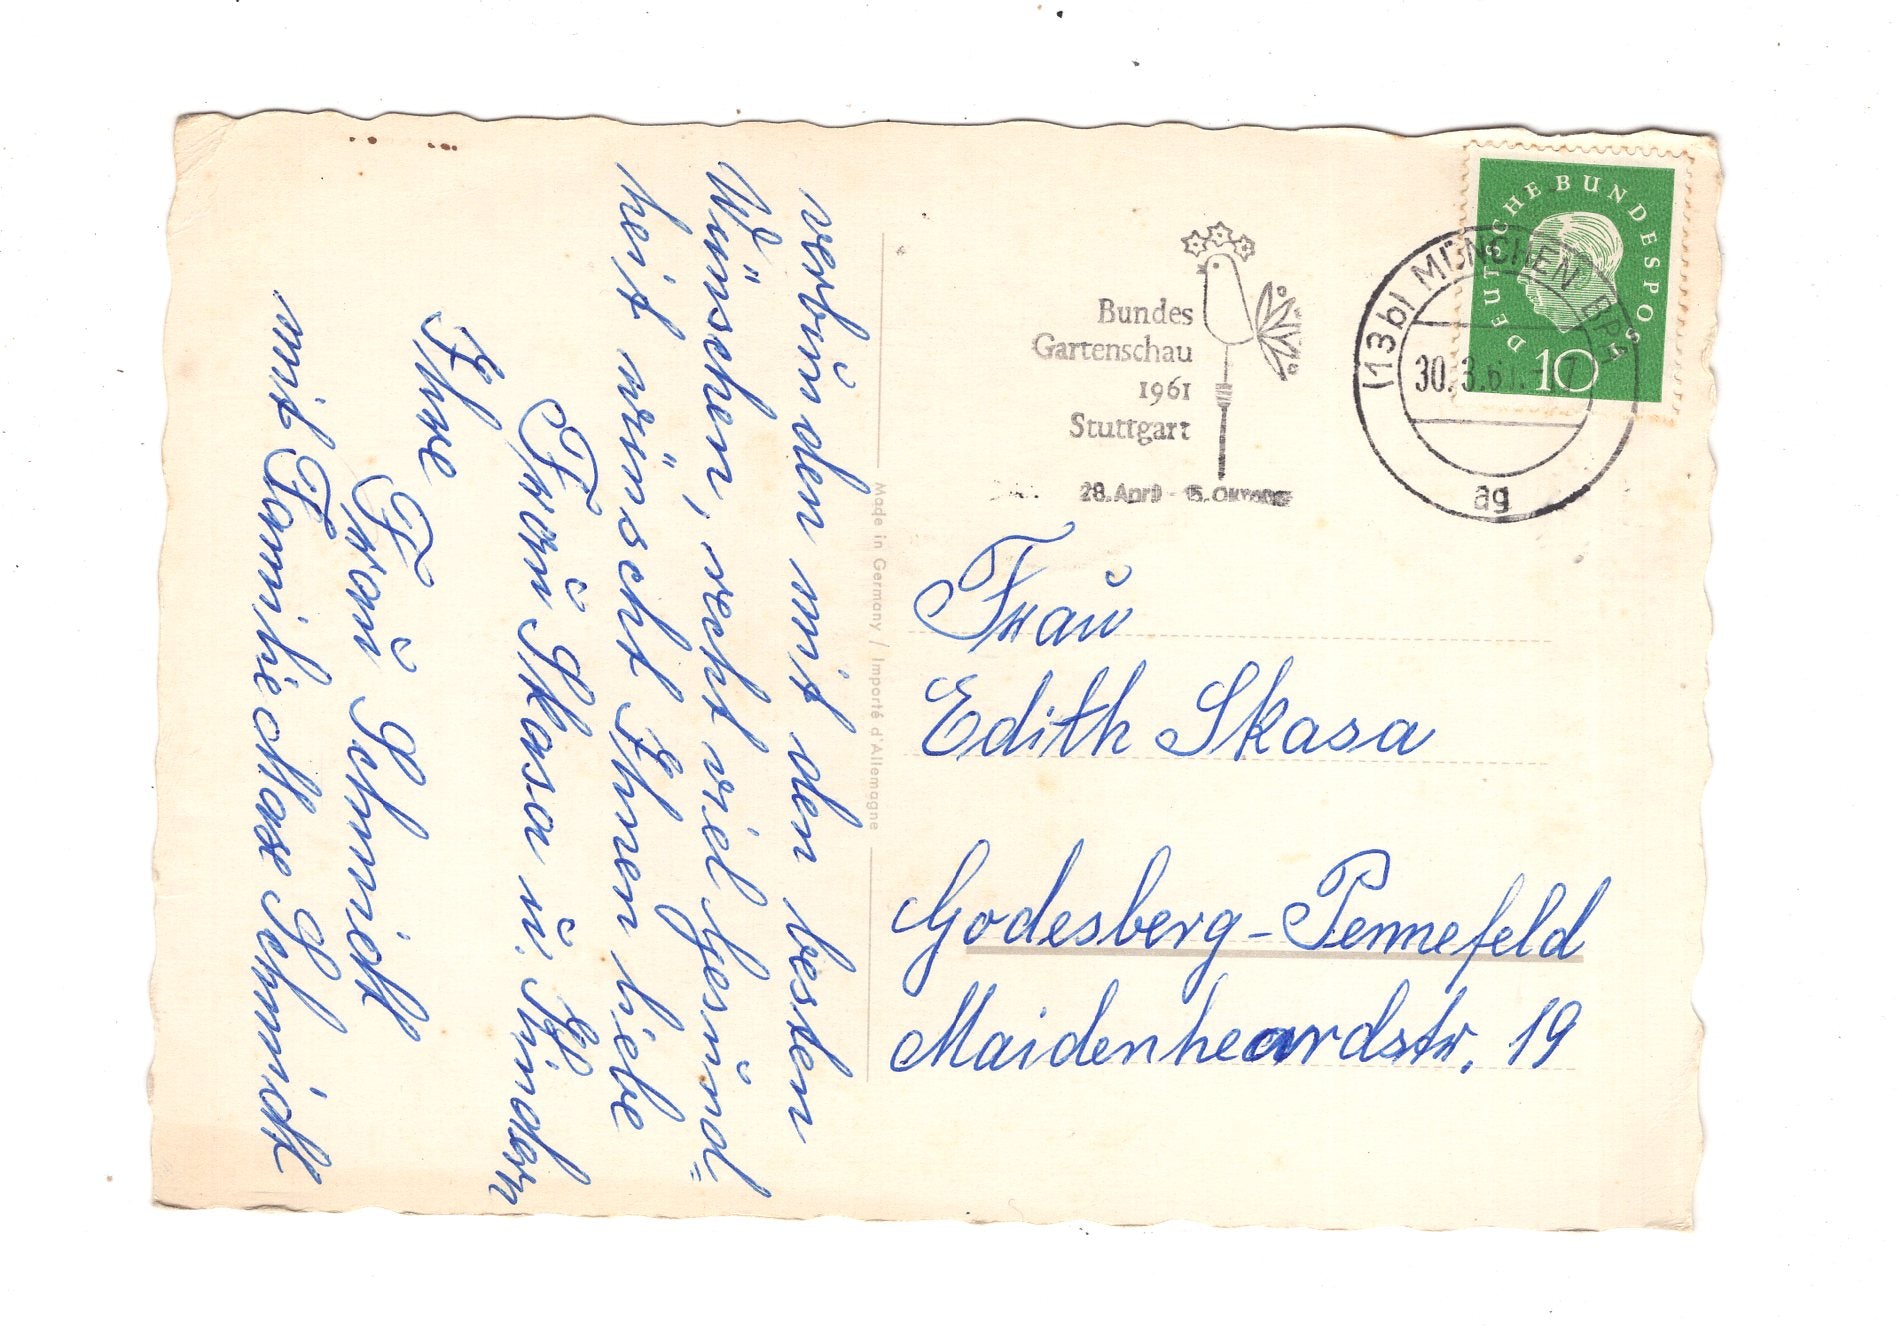 verbunden mit den besten
Wünschen, recht viel Gesund=
heit wünscht Ihnen liebe
Frau Skasa u. Kindern
Ihre Frau Schmidt
mit Familie Max Schmidt
Made in Germany / Importé d'Allemagne
Bundes
Gartenschau
1961
Stuttgart
28. April - 15. Oktober
DEUTSCHE BUNDESPOST
10
(13b) MÜNCHEN BPA
30.3.61.
ag
Frau
Edith Skasa
Godesberg-Pennefeld
Maidenheardstr. 19